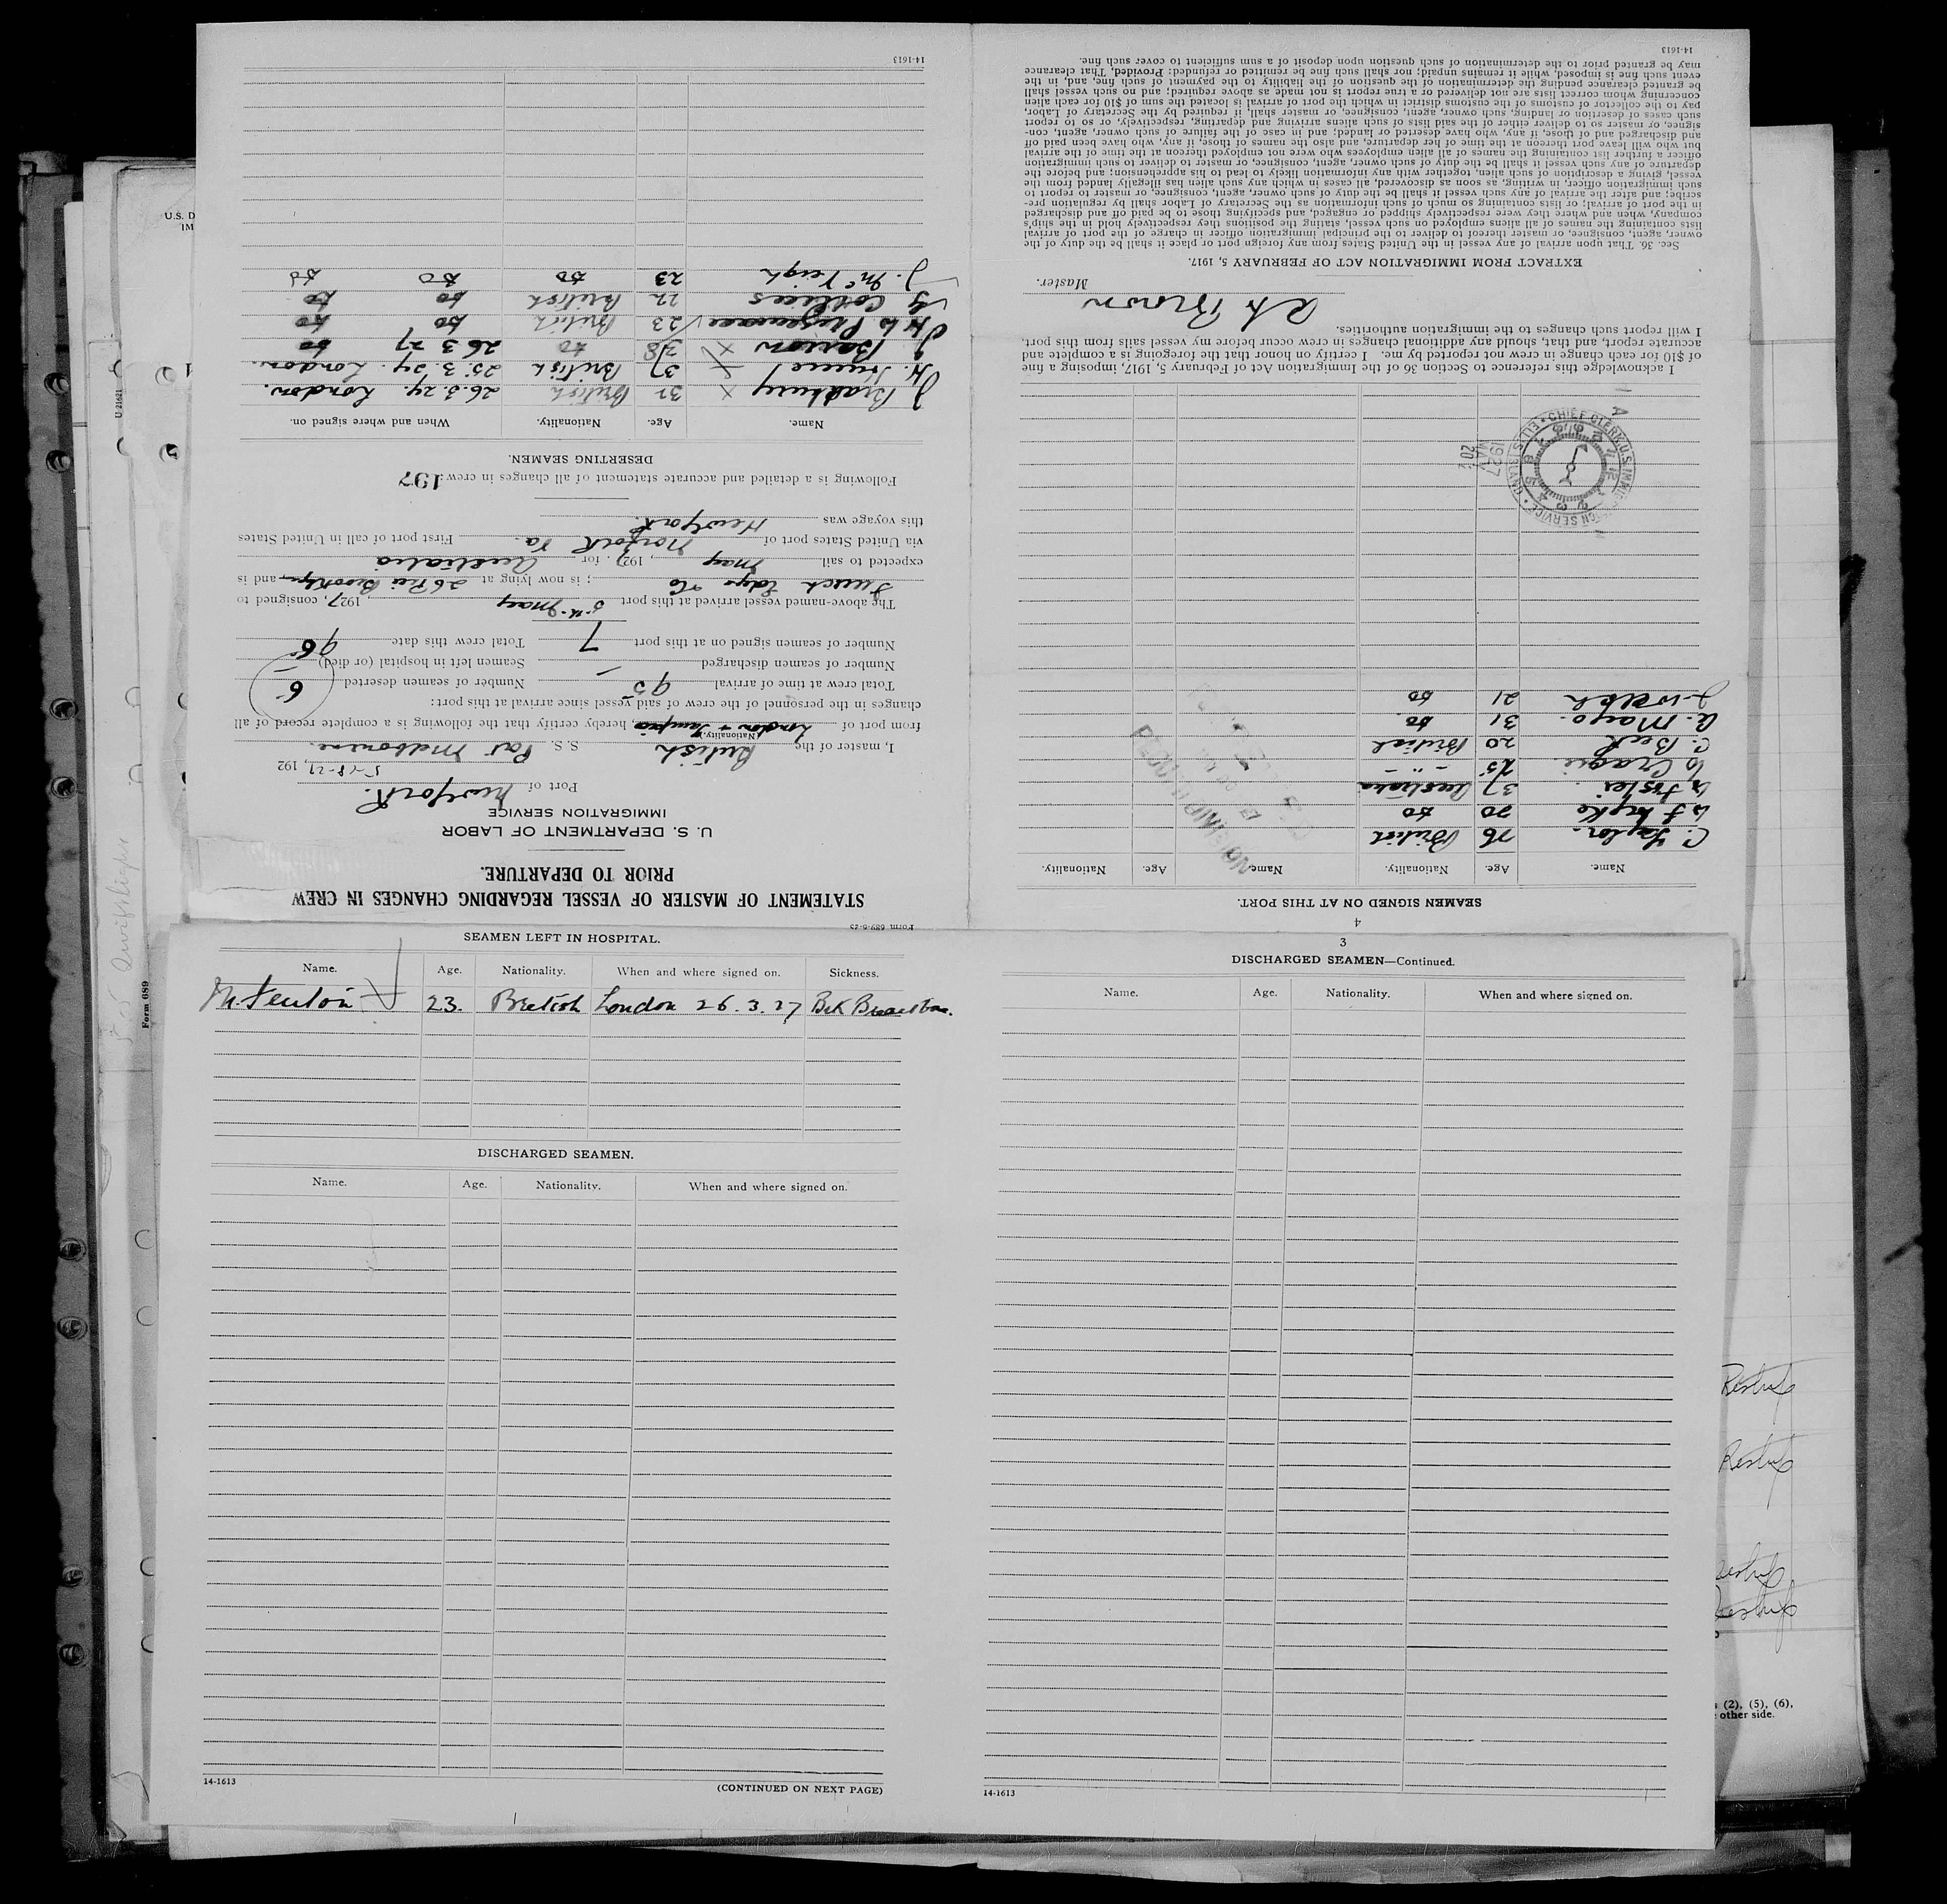 Form 689-6-25
STATEMENT OF MASTER OF VESSEL REGARDING CHANGES IN CREW
PRIOR TO DEPARTURE.
U. S. DEPARTMENT OF LABOR
IMMIGRATION SERVICE
Port of New York.
5-18-27, 192
I, master of the British S. S. Port Melbourne.
(Nationality.)
from port of London & Tampico, hereby certify that the following is a complete record of all
changes in the personnel of the crew of said vessel since arrival at this port:
Total crew at time of arrival 95 Number of seamen deserted 6
Number of seamen discharged — Seamen left in hospital (or died) —
Number of seamen signed on at this port 7 Total crew this date 96
The above-named vessel arrived at this port 5th May, 1927, consigned to
Funch Edye & Co; is now lying at 26 Pier Brooklyn and is
expected to sail May, 1927, for Australia
via United States port of Norfolk Va. First port of call in United States
this voyage was New York.
Following is a detailed and accurate statement of all changes in crew: 197
DESERTING SEAMEN.
Name. Age. Nationality. When and where signed on.
J. Bradbury X 32 British 26.3.27. London.
H. 37 British 25.3.27. London.
J. Barron X 38 do 26 3 27 do
23 British do do
G Collices 22 British do do
J. McVeigh 23 do do do
14-1613
4
SEAMEN SIGNED ON AT THIS PORT.
Name. Age. Nationality. Name. Age. Nationality.
C. Taylor. 76 British
20 do
W Foster. 37 Australia
W Cragie. 25 – " –
C. Beck 20 British
A. Mayo. 31 do.
J. Welsh 21 do
CHIEF CLERK U.S. IMMIGRATION SERVICE
ELLIS ISLAND, N.Y.
1927
MAY
20
I acknowledge this reference to Section 36 of the Immigration Act of February 5, 1917, imposing a fine
of $10 for each change in crew not reported by me. I certify on honor that the foregoing is a complete and
accurate report, and that, should any additional changes in crew occur before my vessel sails from this port,
I will report such changes to the immigration authorities.
Brown
Master.
EXTRACT FROM IMMIGRATION ACT OF FEBRUARY 5, 1917.
Sec. 36. That upon arrival of any vessel in the United States from any foreign port or place it shall be the duty of the
owner, agent, consignee, or master thereof to deliver to the principal immigration officer in charge of the port of arrival
lists containing the names of all aliens employed on such vessel, stating the positions they respectively hold in the ship's
company, when and where they were respectively shipped or engaged, and specifying those to be paid off and discharged
in the port of arrival; or lists containing so much of such information as the Secretary of Labor shall by regulation pre-
scribe; and after the arrival of any such vessel it shall be the duty of such owner, agent, consignee, or master to report to
such immigration officer, in writing, as soon as discovered, all cases in which any such alien has illegally landed from the
vessel, giving a description of such alien, together with any information likely to lead to his apprehension; and before the
departure of any such vessel it shall be the duty of such owner, agent, consignee, or master to deliver to such immigration
officer a further list containing the names of all alien employees who were not employed thereon at the time of the arrival
but who will leave port thereon at the time of her departure, and also the names of those, if any, who have been paid off
and discharged and of those, if any, who have deserted or landed; and in case of the failure of such owner, agent, con-
signee, or master so to deliver either of the said lists of such aliens arriving and departing, respectively, or so to report
such cases of desertion or landing, such owner, agent, consignee, or master shall, if required by the Secretary of Labor,
pay to the collector of customs of the customs district in which the port of arrival is located the sum of $10 for each alien
concerning whom correct lists are not delivered or a true report is not made as above required; and no such vessel shall
be granted clearance pending the determination of the question of the liability to the payment of such fine, and, in the
event such fine is imposed, while it remains unpaid; nor shall such fine be remitted or refunded: Provided, That clearance
may be granted prior to the determination of such question upon deposit of a sum sufficient to cover such fine.
14-1613
SEAMEN LEFT IN HOSPITAL.
Name. Age. Nationality. When and where signed on. Sickness.
M. Fenton 23. British London 26.3.27
DISCHARGED SEAMEN.
Name. Age. Nationality. When and where signed on.
14-1613
(CONTINUED ON NEXT PAGE)
3
DISCHARGED SEAMEN—Continued.
Name. Age. Nationality. When and where signed on.
14-1613
U.S. D
IM
U 21621
Form 689
(2), (5), (6),
other side.